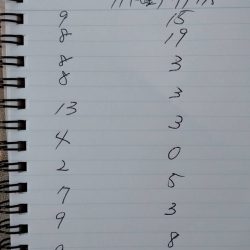 9 15
8 19
8 3
8 3
13 3
4 0
2 5
7 3
9 8